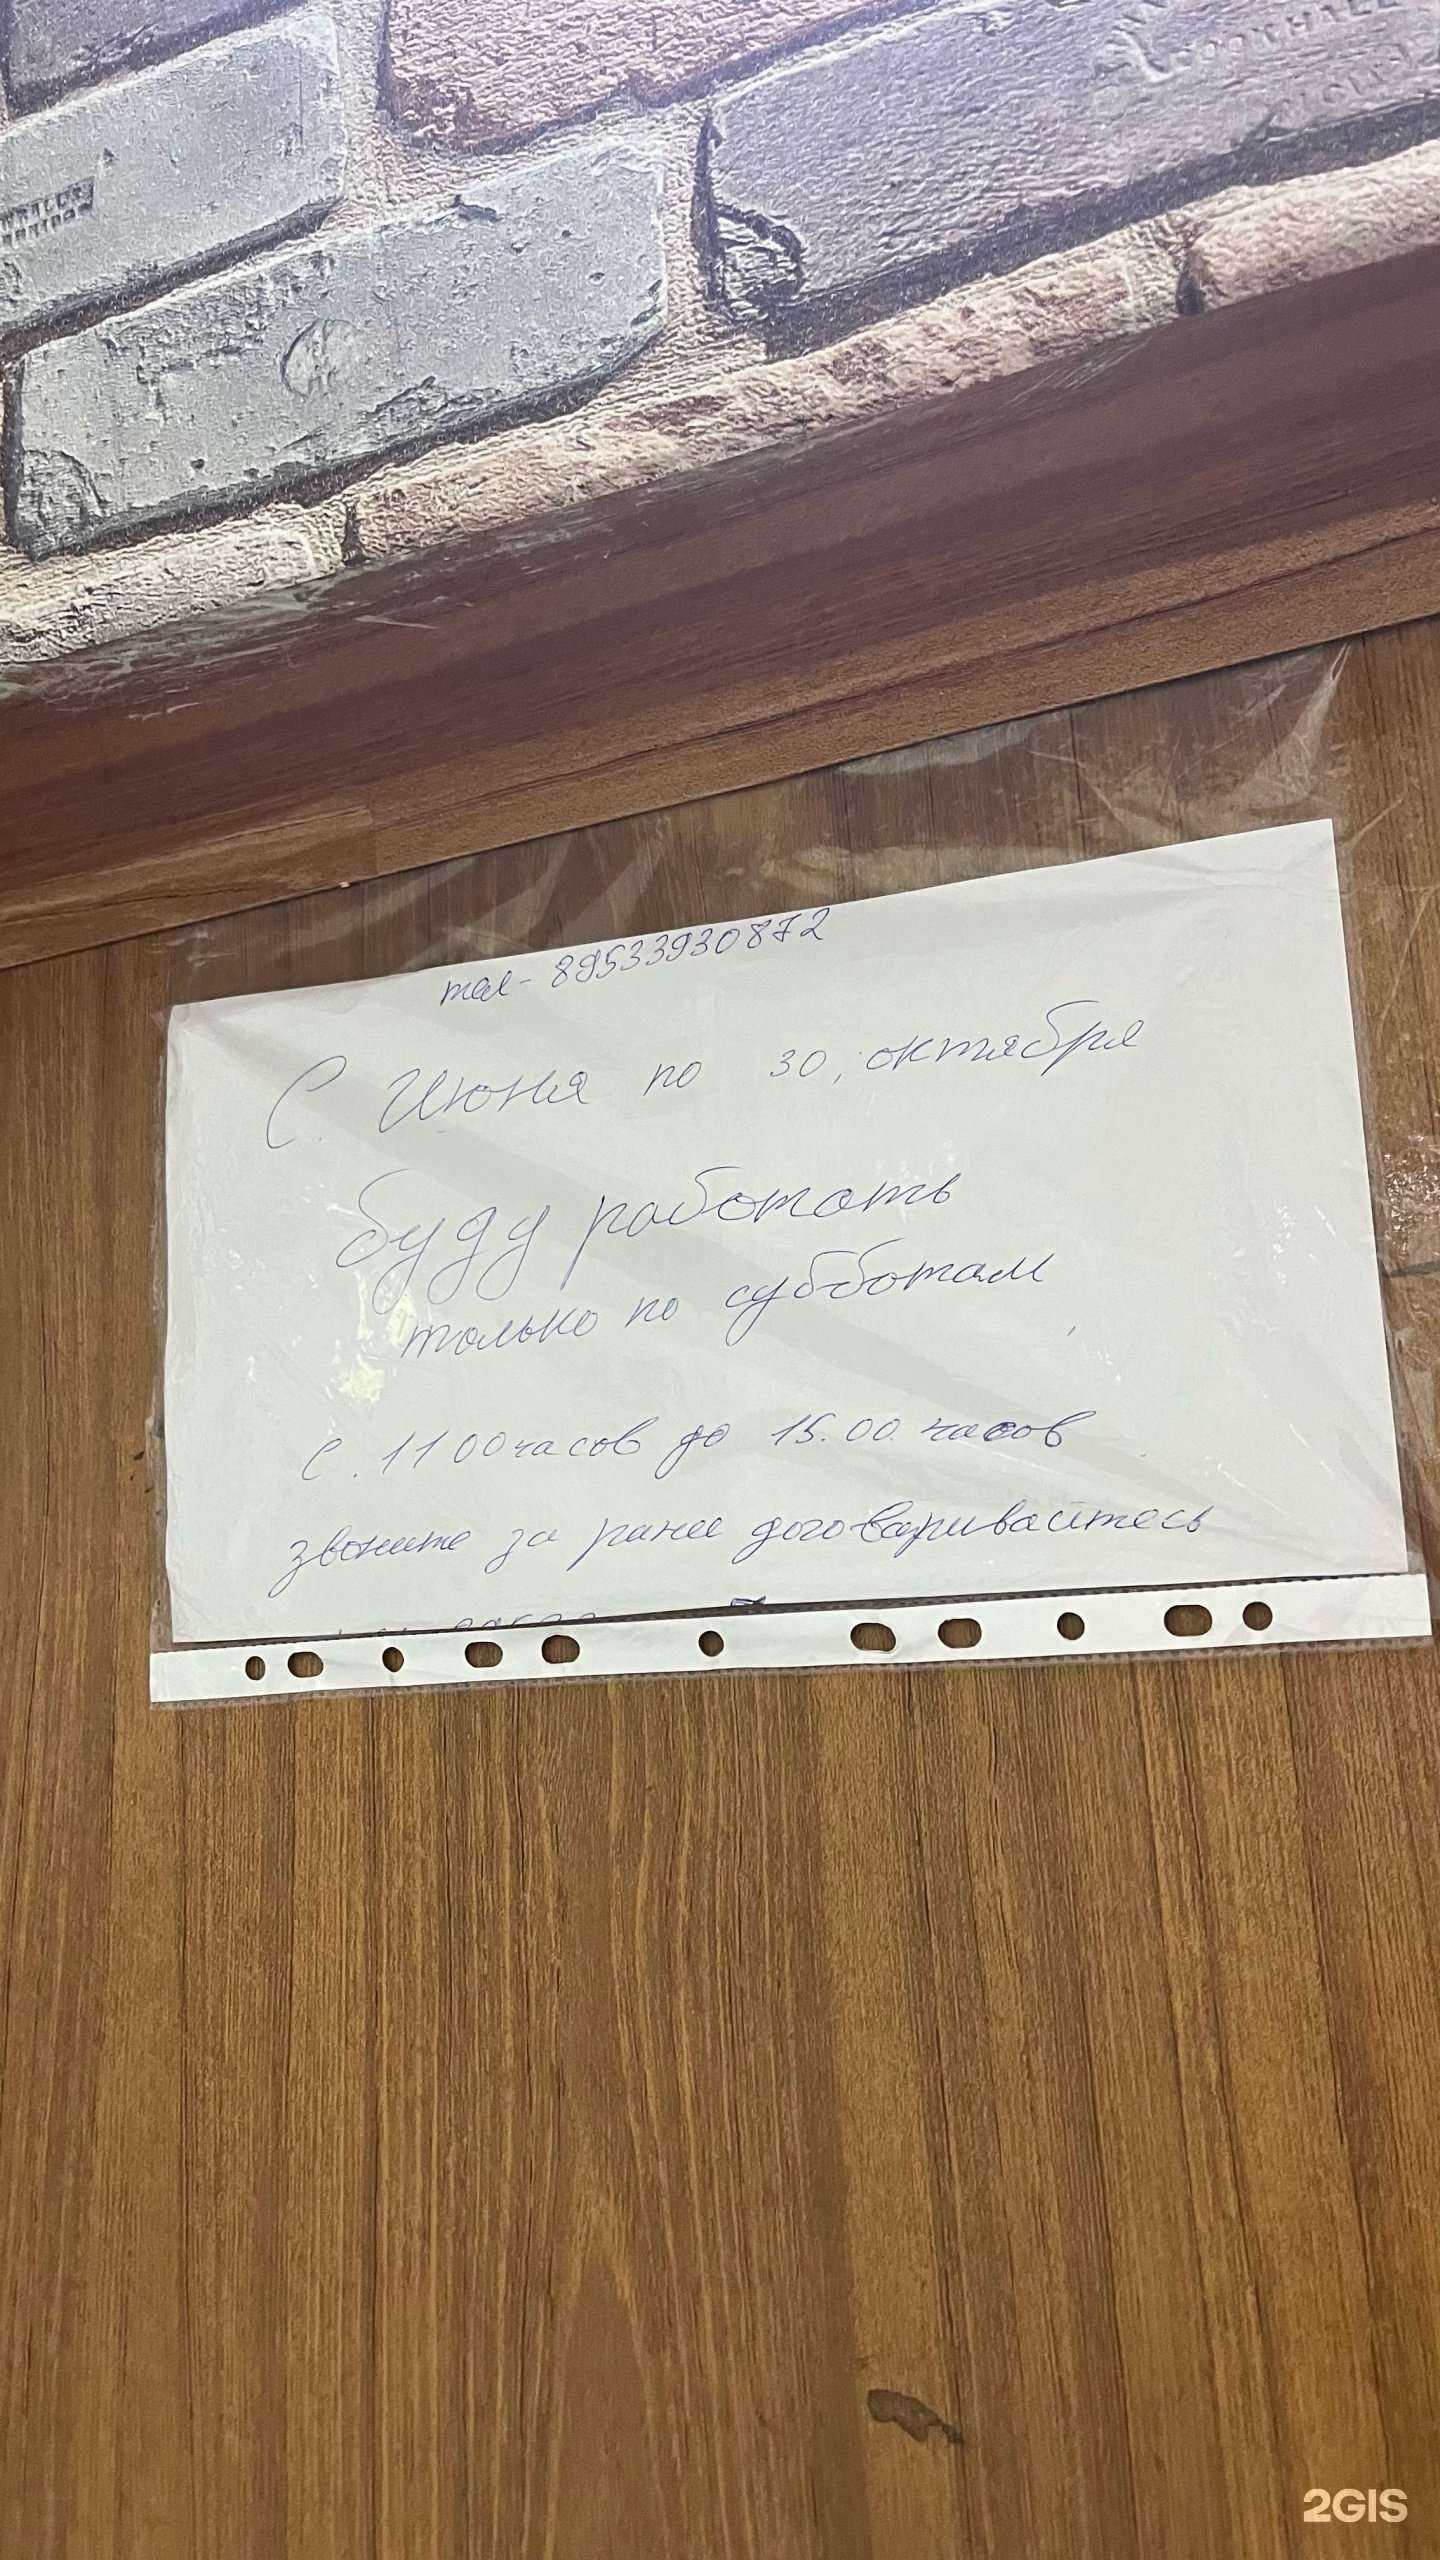 тел- 89533930872
С. Июня по 30, октября
буду работать
только по субботам
С. 11 00 часов до 15.00 часов
звоните за ранее договаривайтесь
2GIS